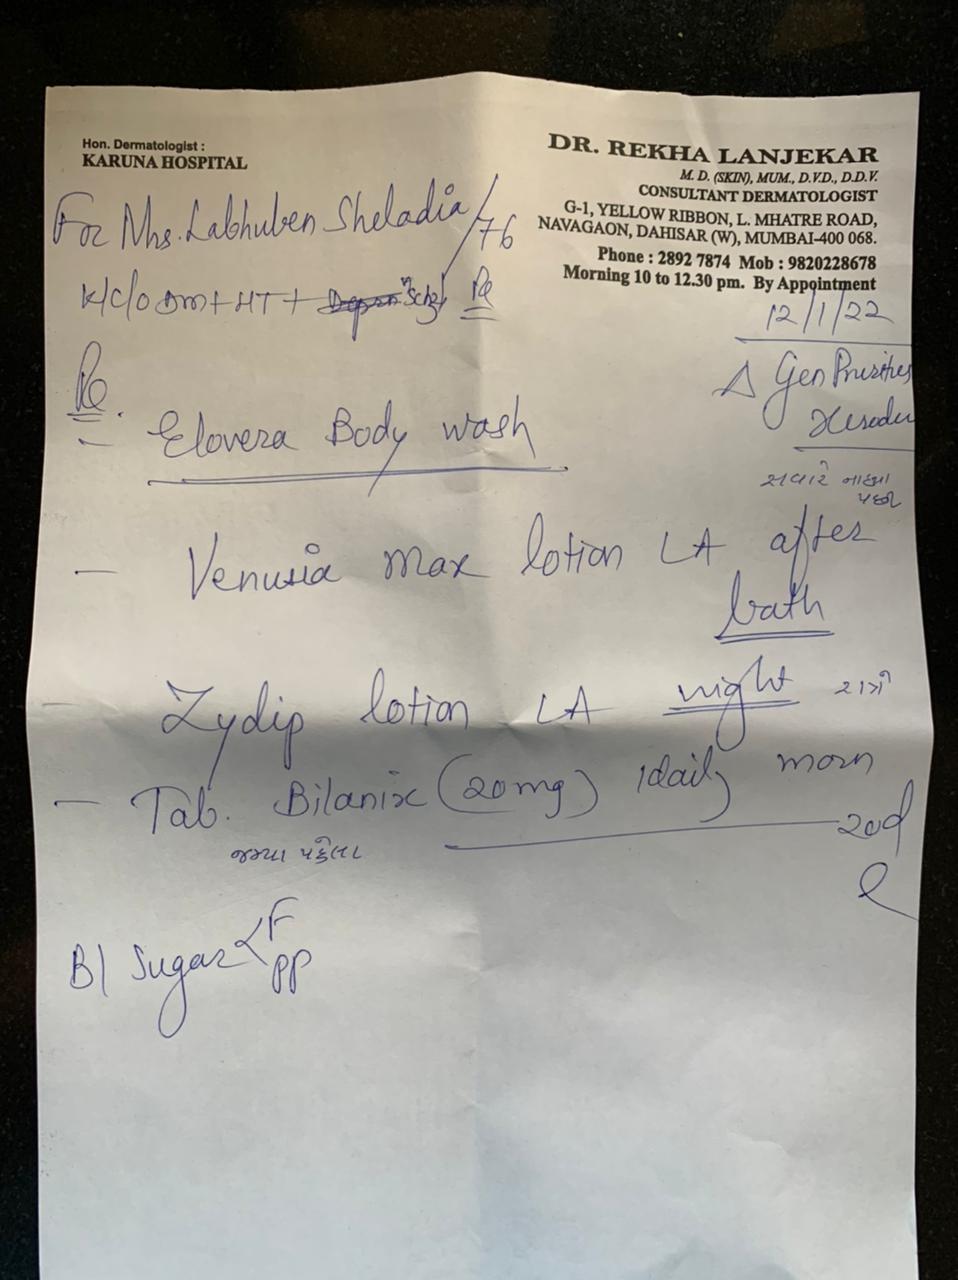 Hon. Dermatologist :
KARUNA HOSPITAL
DR. REKHA LANJEKAR
M. D. (SKIN), MUM., D.V.D., D.D.V.
CONSULTANT DERMATOLOGIST
G-1, YELLOW RIBBON, L. MHATRE ROAD,
NAVAGAON, DAHISAR (W), MUMBAI-400 068.
Phone : 2892 7874 Mob : 9820228678
Morning 10 to 12.30 pm. By Appointment
For Mrs. Labhuben Sheladia / 76
K/C/O DM + HT + Rx
12/1/22
Δ Gen Pruritus
Rx.
- Elovera Body wash
સવારે નાહ્યા
પછી
- Venusia Max lotion LA after
bath
- Zydip lotion LA night રાત્રે
- Tab. Bilanix (20mg) 1daily morn
20d
જમ્યા પહેલા
B/ Sugar < F
PP